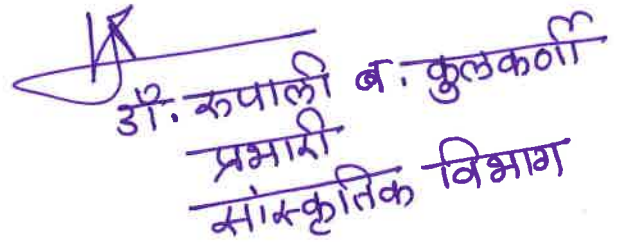 डॉ. रुपाली ब. कुलकर्णी
प्रभारी
सांस्कृतिक विभाग